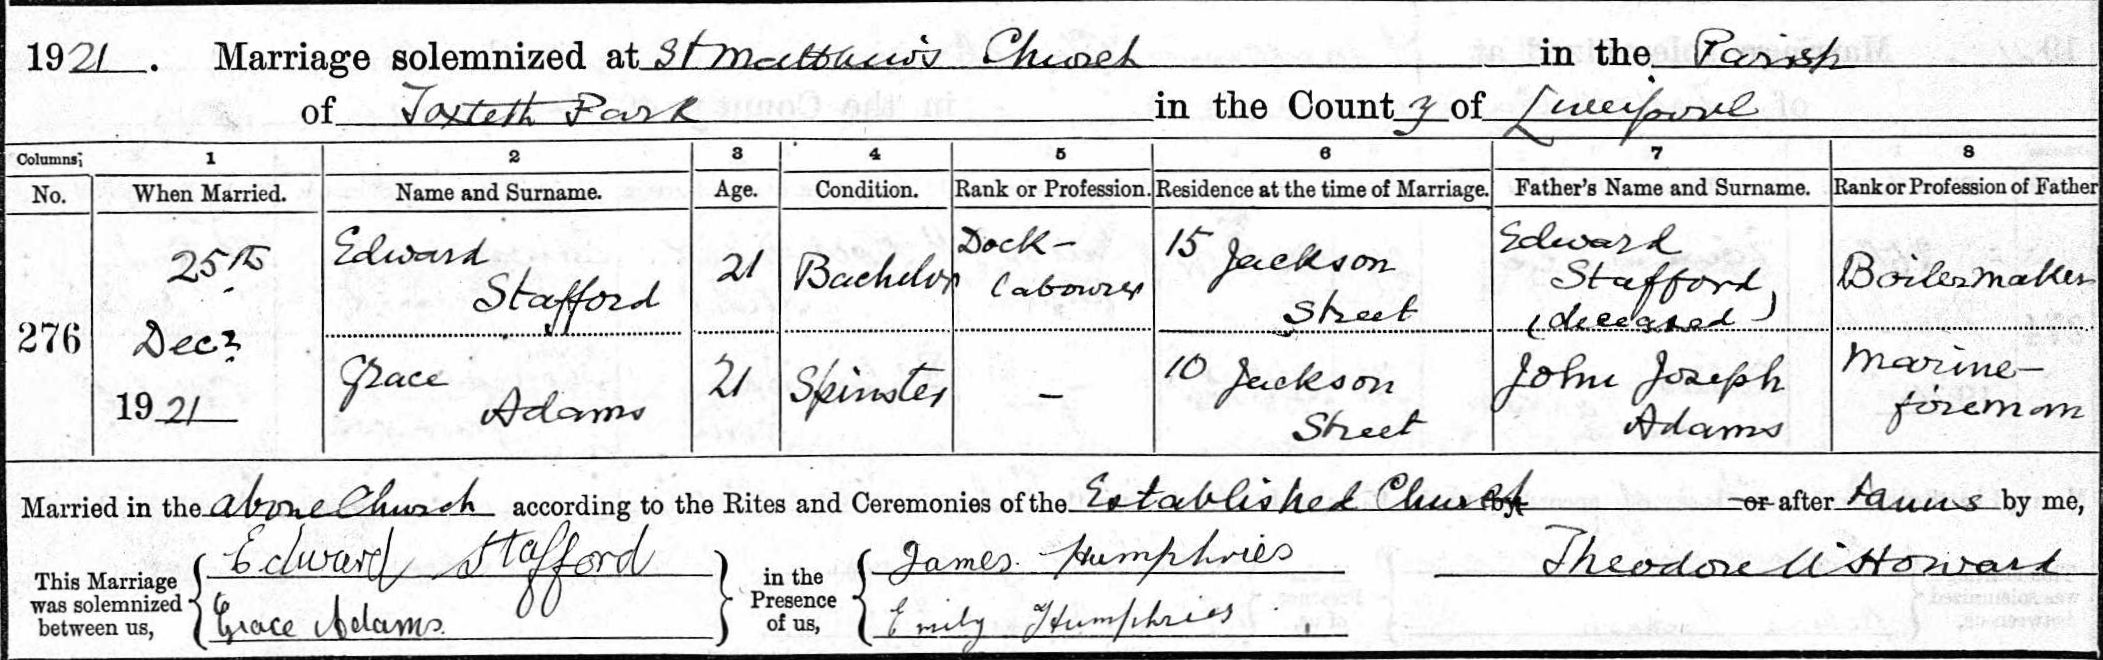 1921. Marriage solemnized at St Matthew's Church in the Parish
of Toxteth Park in the County of Liverpool
Columns; 1 2 3 4 5 6 7 8
No. When Married. Name and Surname. Age. Condition. Rank or Profession. Residence at the time of Marriage. Father's Name and Surname. Rank or Profession of Father
276
25th
Decr
1921
Edward
Stafford
21
Bachelor
Dock-
labourer
15 Jackson
Street
Edward
Stafford
(deceased)
Boilermaker
Grace
Adams
21
Spinster
-
10 Jackson
Street
John Joseph
Adams
Marine-
foreman
Married in the above Church according to the Rites and Ceremonies of the Established Church by or after Banns by me,
This Marriage
was solemnized
between us,
Edward Stafford
Grace Adams.
in the
Presence
of us,
James Humphries
Emily Humphries
Theodore Howard